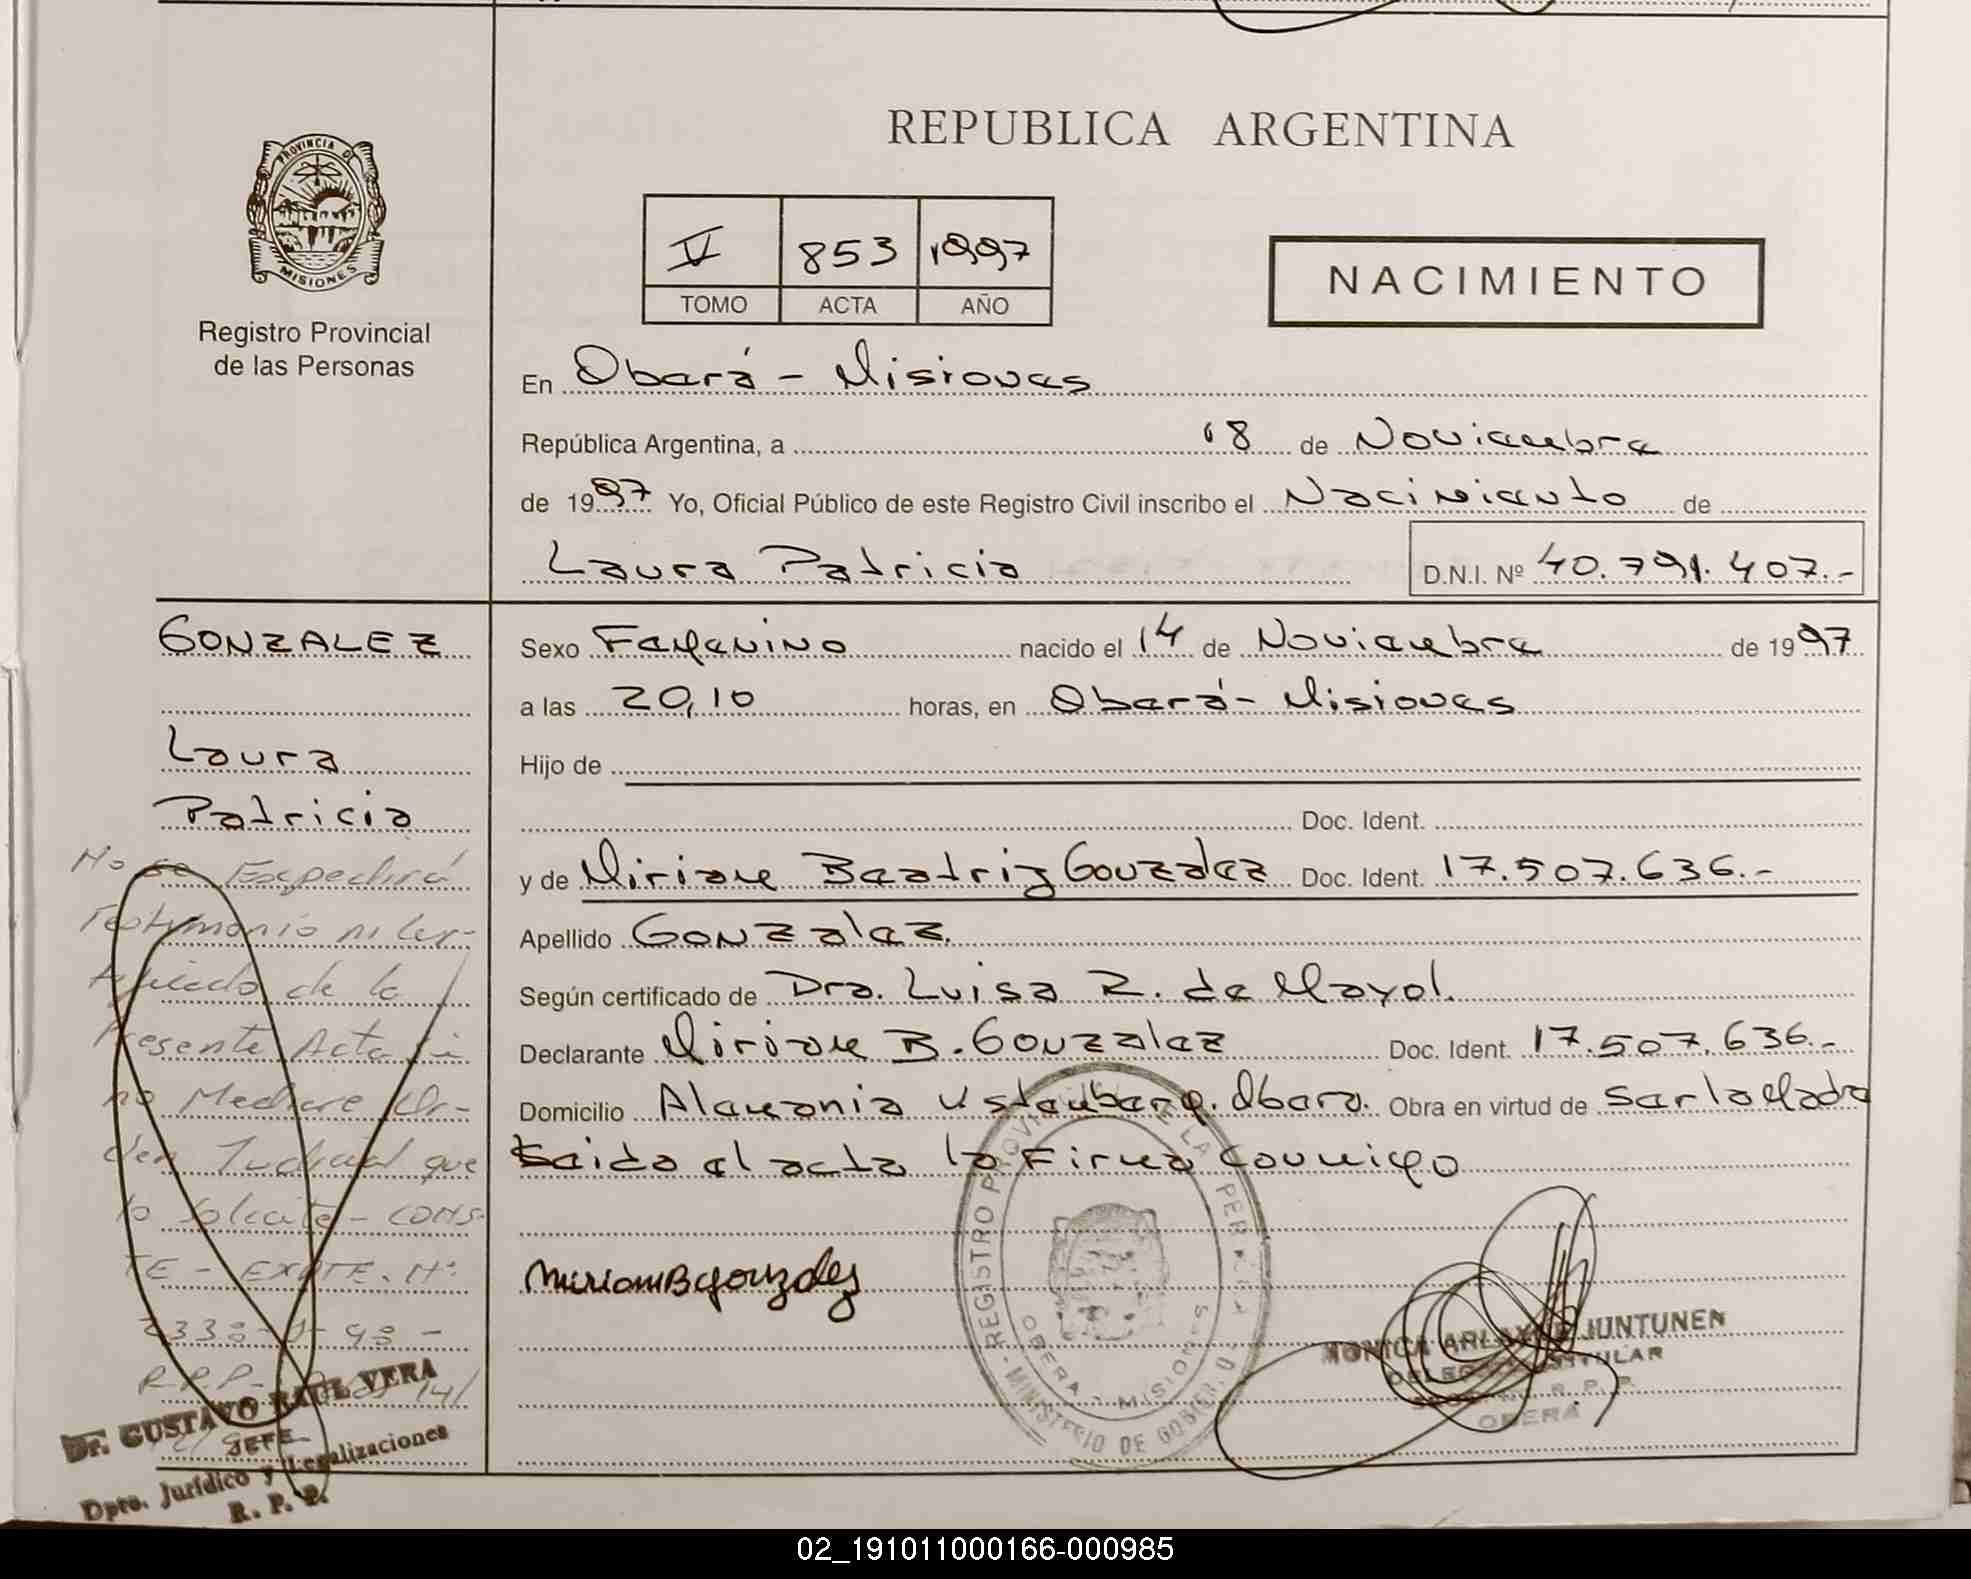 REPUBLICA ARGENTINA
PROVINCIA DE
MISIONES
Registro Provincial
de las Personas
V 853 1997
TOMO ACTA AÑO
NACIMIENTO
En Oberá - Misiones
República Argentina, a 18 de Noviembre
de 1997 Yo, Oficial Público de este Registro Civil inscribo el Nacimiento de
Laura Patricia D.N.I. Nº 40.791.407.-
GONZALEZ
Laura
Patricia
No se Expedirá
Testimonio ni Cer-
tificado de la
Presente Acta si
no Mediare Or-
den Judicial que
lo Solicite - CONS-
TE - EXPTE. Nº
2338
R.P.P.
Dr. GUSTAVO RAUL VERA
JEFE
Dpto. Jurídico y Legalizaciones
R. P. P.
Sexo Femenino nacido el 14 de Noviembre de 1997
a las 20,10 horas, en Oberá - Misiones
Hijo de
Doc. Ident.
y de Miriam Beatriz Gonzalez Doc. Ident. 17.507.636.-
Apellido Gonzalez.
Según certificado de Dra. Luisa R. de Mayol.
Declarante Miriam B. Gonzalez Doc. Ident. 17.507.636.-
Domicilio Alemania Obera. Obra en virtud de ser la madre
Leida el acta la Firma Conmigo
MiriamBGonzalez
REGISTRO PROVINCIAL DE LAS PERSONAS
OBERA - MISIONES
MINISTERIO DE GOBIERNO
MONICA JUNTUNEN
TITULAR
R. P. P.
OBERA
02_191011000166-000985